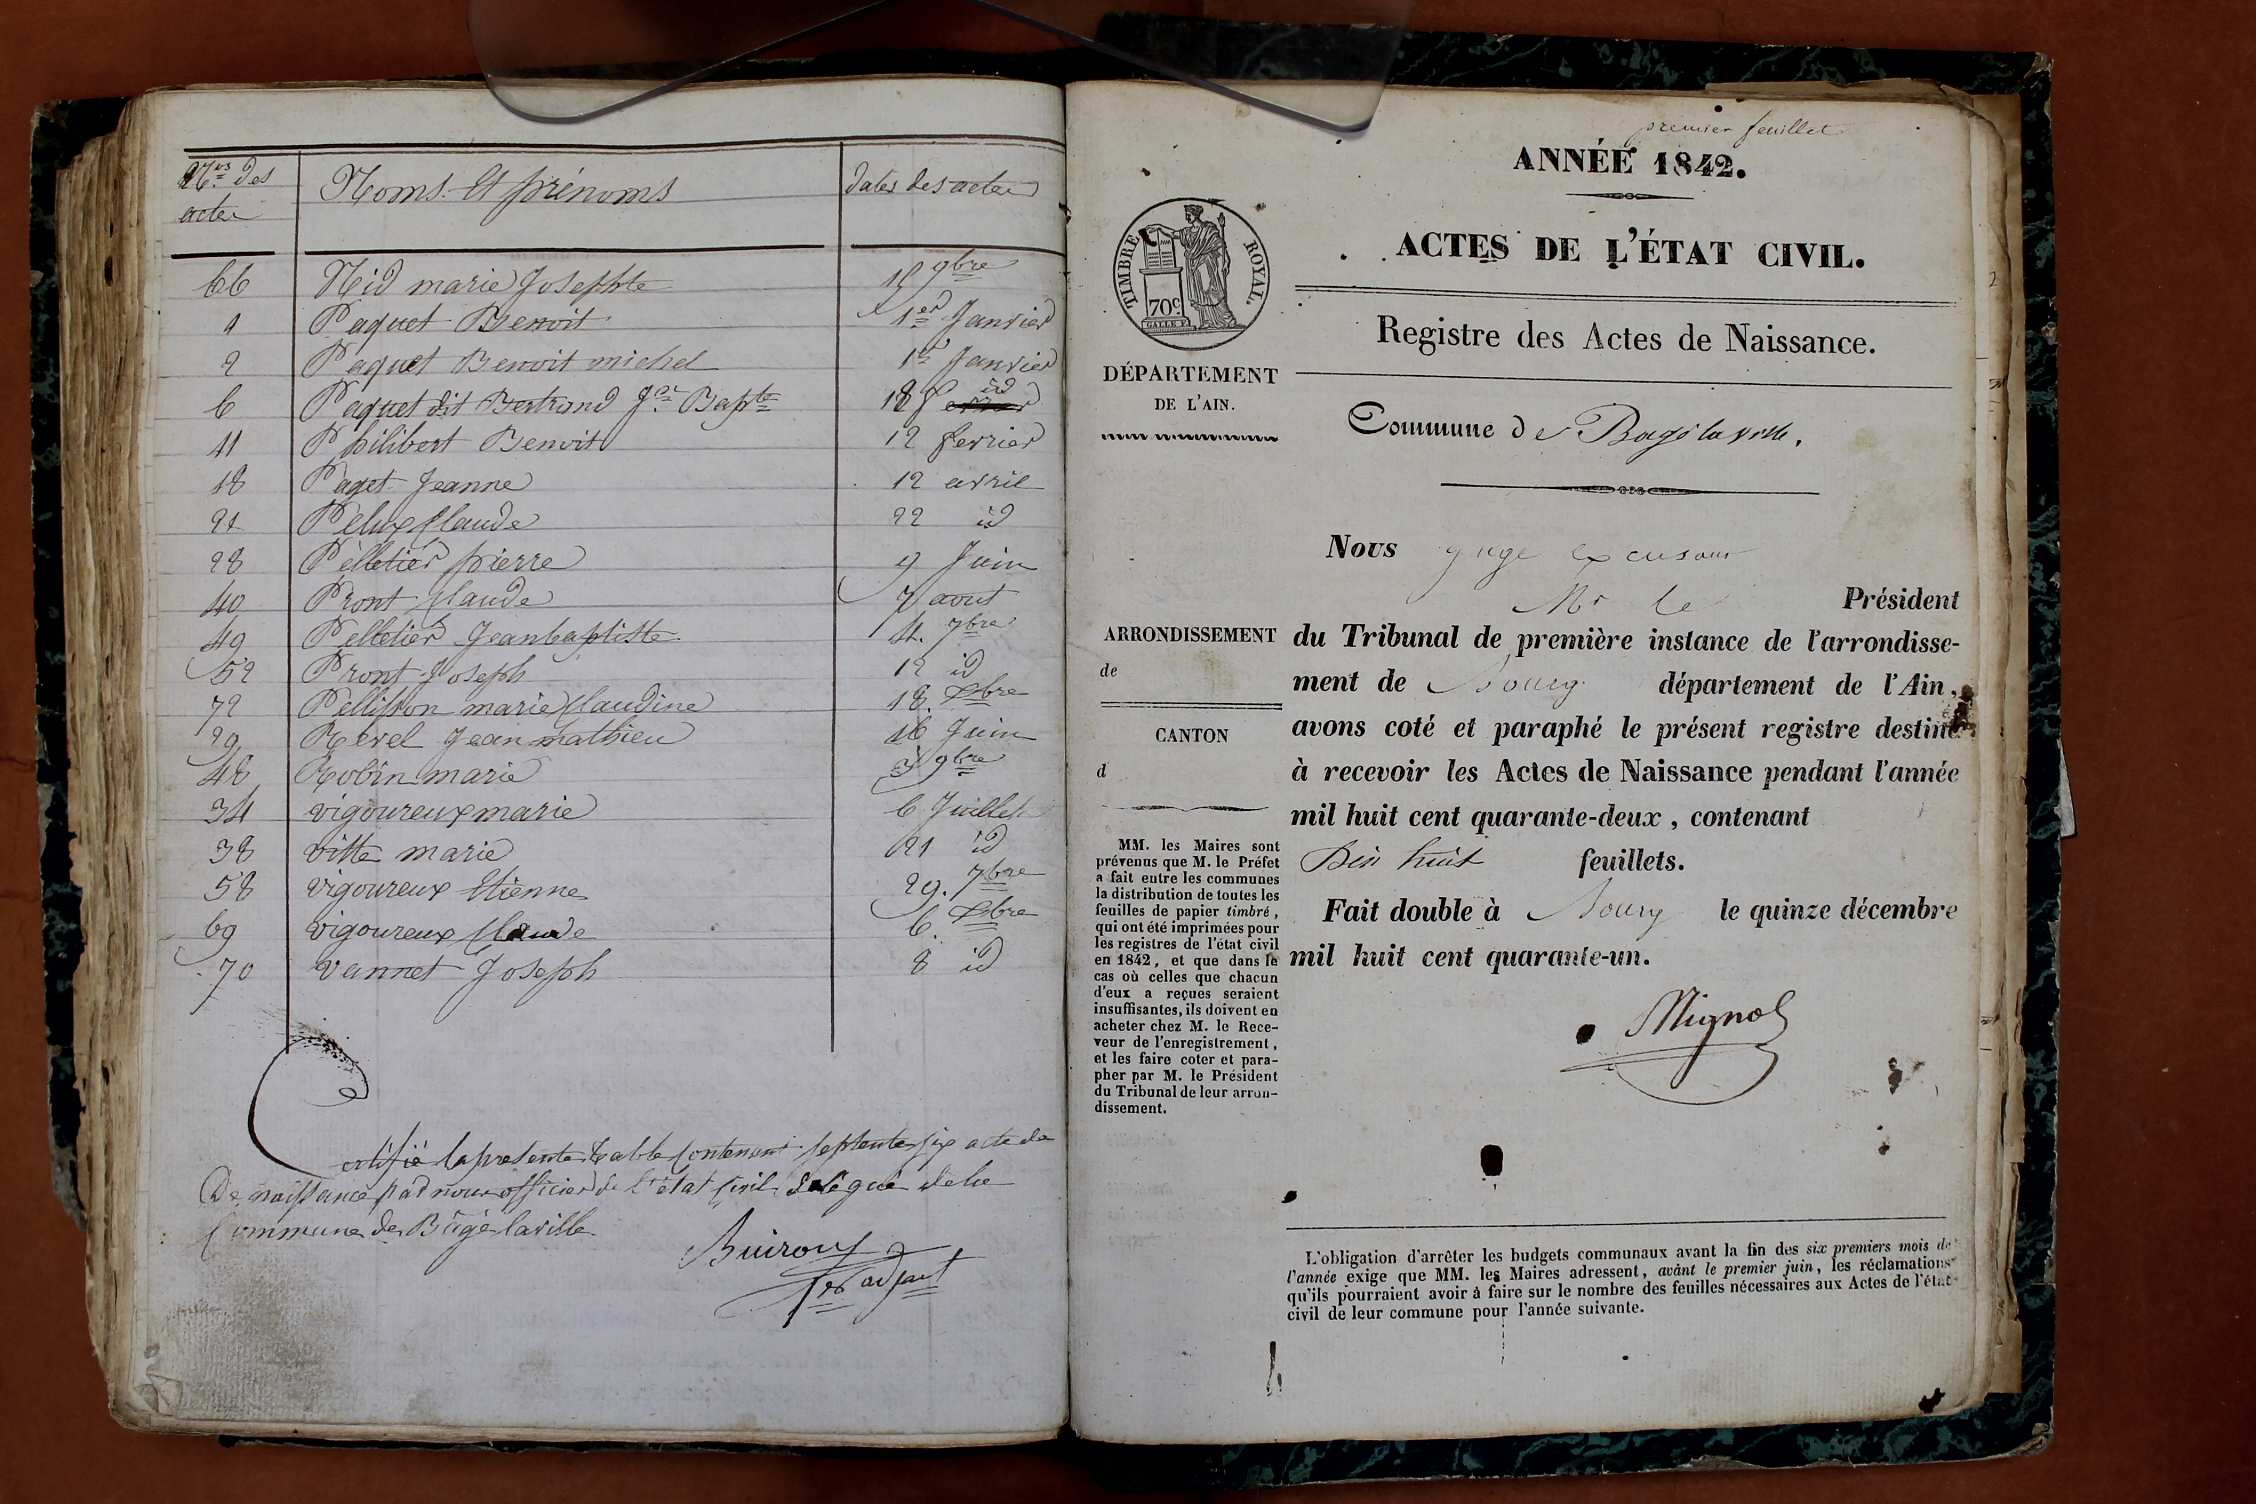 Nos des
actes
Noms et prénoms
dates des actes
66 Nid marie Josephte 15 9bre
1 Paquet Benoit 1er Janvier
2 Paquet Benoit michel 1er Janvier
6 Paquet dit Bertrand Jn Bapte 18 id
11 Philibert Benoit 12 fevrier
18 Paget Jeanne 12 avril
21 Pelux Claude 22 id
28 Pelletier pierre 9 Juin
40 Pront Claude 7 aout
49 Pelletier Jeanbaptiste 4. 7bre
52 Pront Joseph 12 id
72 Pellisson marie Claudine 18. Xbre
29 Revel Jean mathieu 16 Juin
48 Robin marie 3 9bre
34 vigoureux marie 6 Juillet
38 vitte marie 21 id
58 vigoureux Etienne 29. 7bre
69 vigoureux Claude 6. Xbre
70 vannet Joseph 8 id
Certifié la presente table Contenant septente six acte de
De naissance par nous officier de l'état Civil délégué de la
Commune de Bâgé laville
Buiron
1er adjoint
premier feuillet
ANNÉE 1842.
ACTES DE L'ÉTAT CIVIL.
TIMBRE ROYAL.
70c
GALLE F.
Registre des Actes de Naissance.
DÉPARTEMENT
DE L'AIN.
Commune de Bagé la ville.
Nous juge excusant
Mr le Président
ARRONDISSEMENT
de
du Tribunal de première instance de l'arrondisse-
ment de Bourg département de l'Ain,
CANTON
d
avons coté et paraphé le présent registre destiné
à recevoir les Actes de Naissance pendant l'année
mil huit cent quarante-deux, contenant
Dix huit feuillets.
Fait double à Bourg le quinze décembre
mil huit cent quarante-un.
Mignot
MM. les Maires sont
prévenus que M. le Préfet
a fait entre les communes
la distribution de toutes les
feuilles de papier timbré,
qui ont été imprimées pour
les registres de l'état civil
en 1842, et que dans le
cas où celles que chacun
d'eux a reçues seraient
insuffisantes, ils doivent en
acheter chez M. le Rece-
veur de l'enregistrement,
et les faire coter et para-
pher par M. le Président
du Tribunal de leur arron-
dissement.
L'obligation d'arrêter les budgets communaux avant la fin des six premiers mois de
l'année exige que MM. les Maires adressent, avant le premier juin, les réclamations
qu'ils pourraient avoir à faire sur le nombre des feuilles nécessaires aux Actes de l'état
civil de leur commune pour l'année suivante.